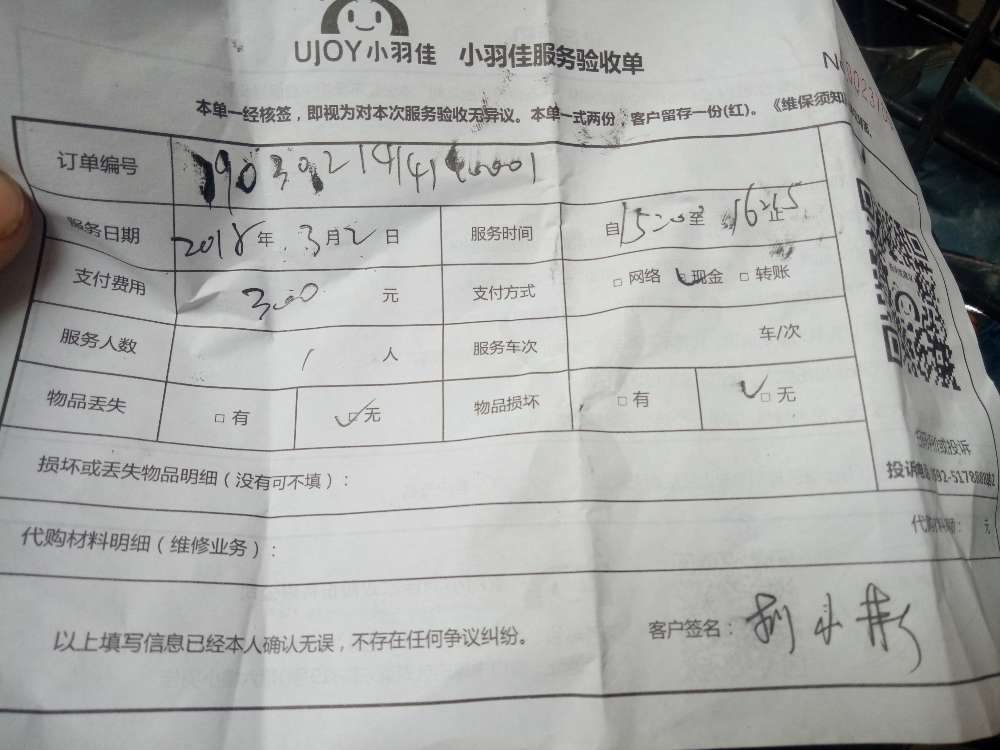 UJOY小羽佳 小羽佳服务验收单
本单一经核签，即视为对本次服务验收无异议。本单一式两份，客户留存一份(红)。《维保须知
订单编号
服务日期 2018年 3月2日 服务时间 自1520至 止
支付费用 300 元 支付方式 □网络 现金 □转账
服务人数 1 人 服务车次 车/次
物品丢失 □有 ✓□无 物品损坏 □有 ✓□无
扫码评价或投诉
损坏或丢失物品明细（没有可不填）：
代购材料明细（维修业务）：
元
以上填写信息已经本人确认无误，不存在任何争议纠纷。 客户签名：